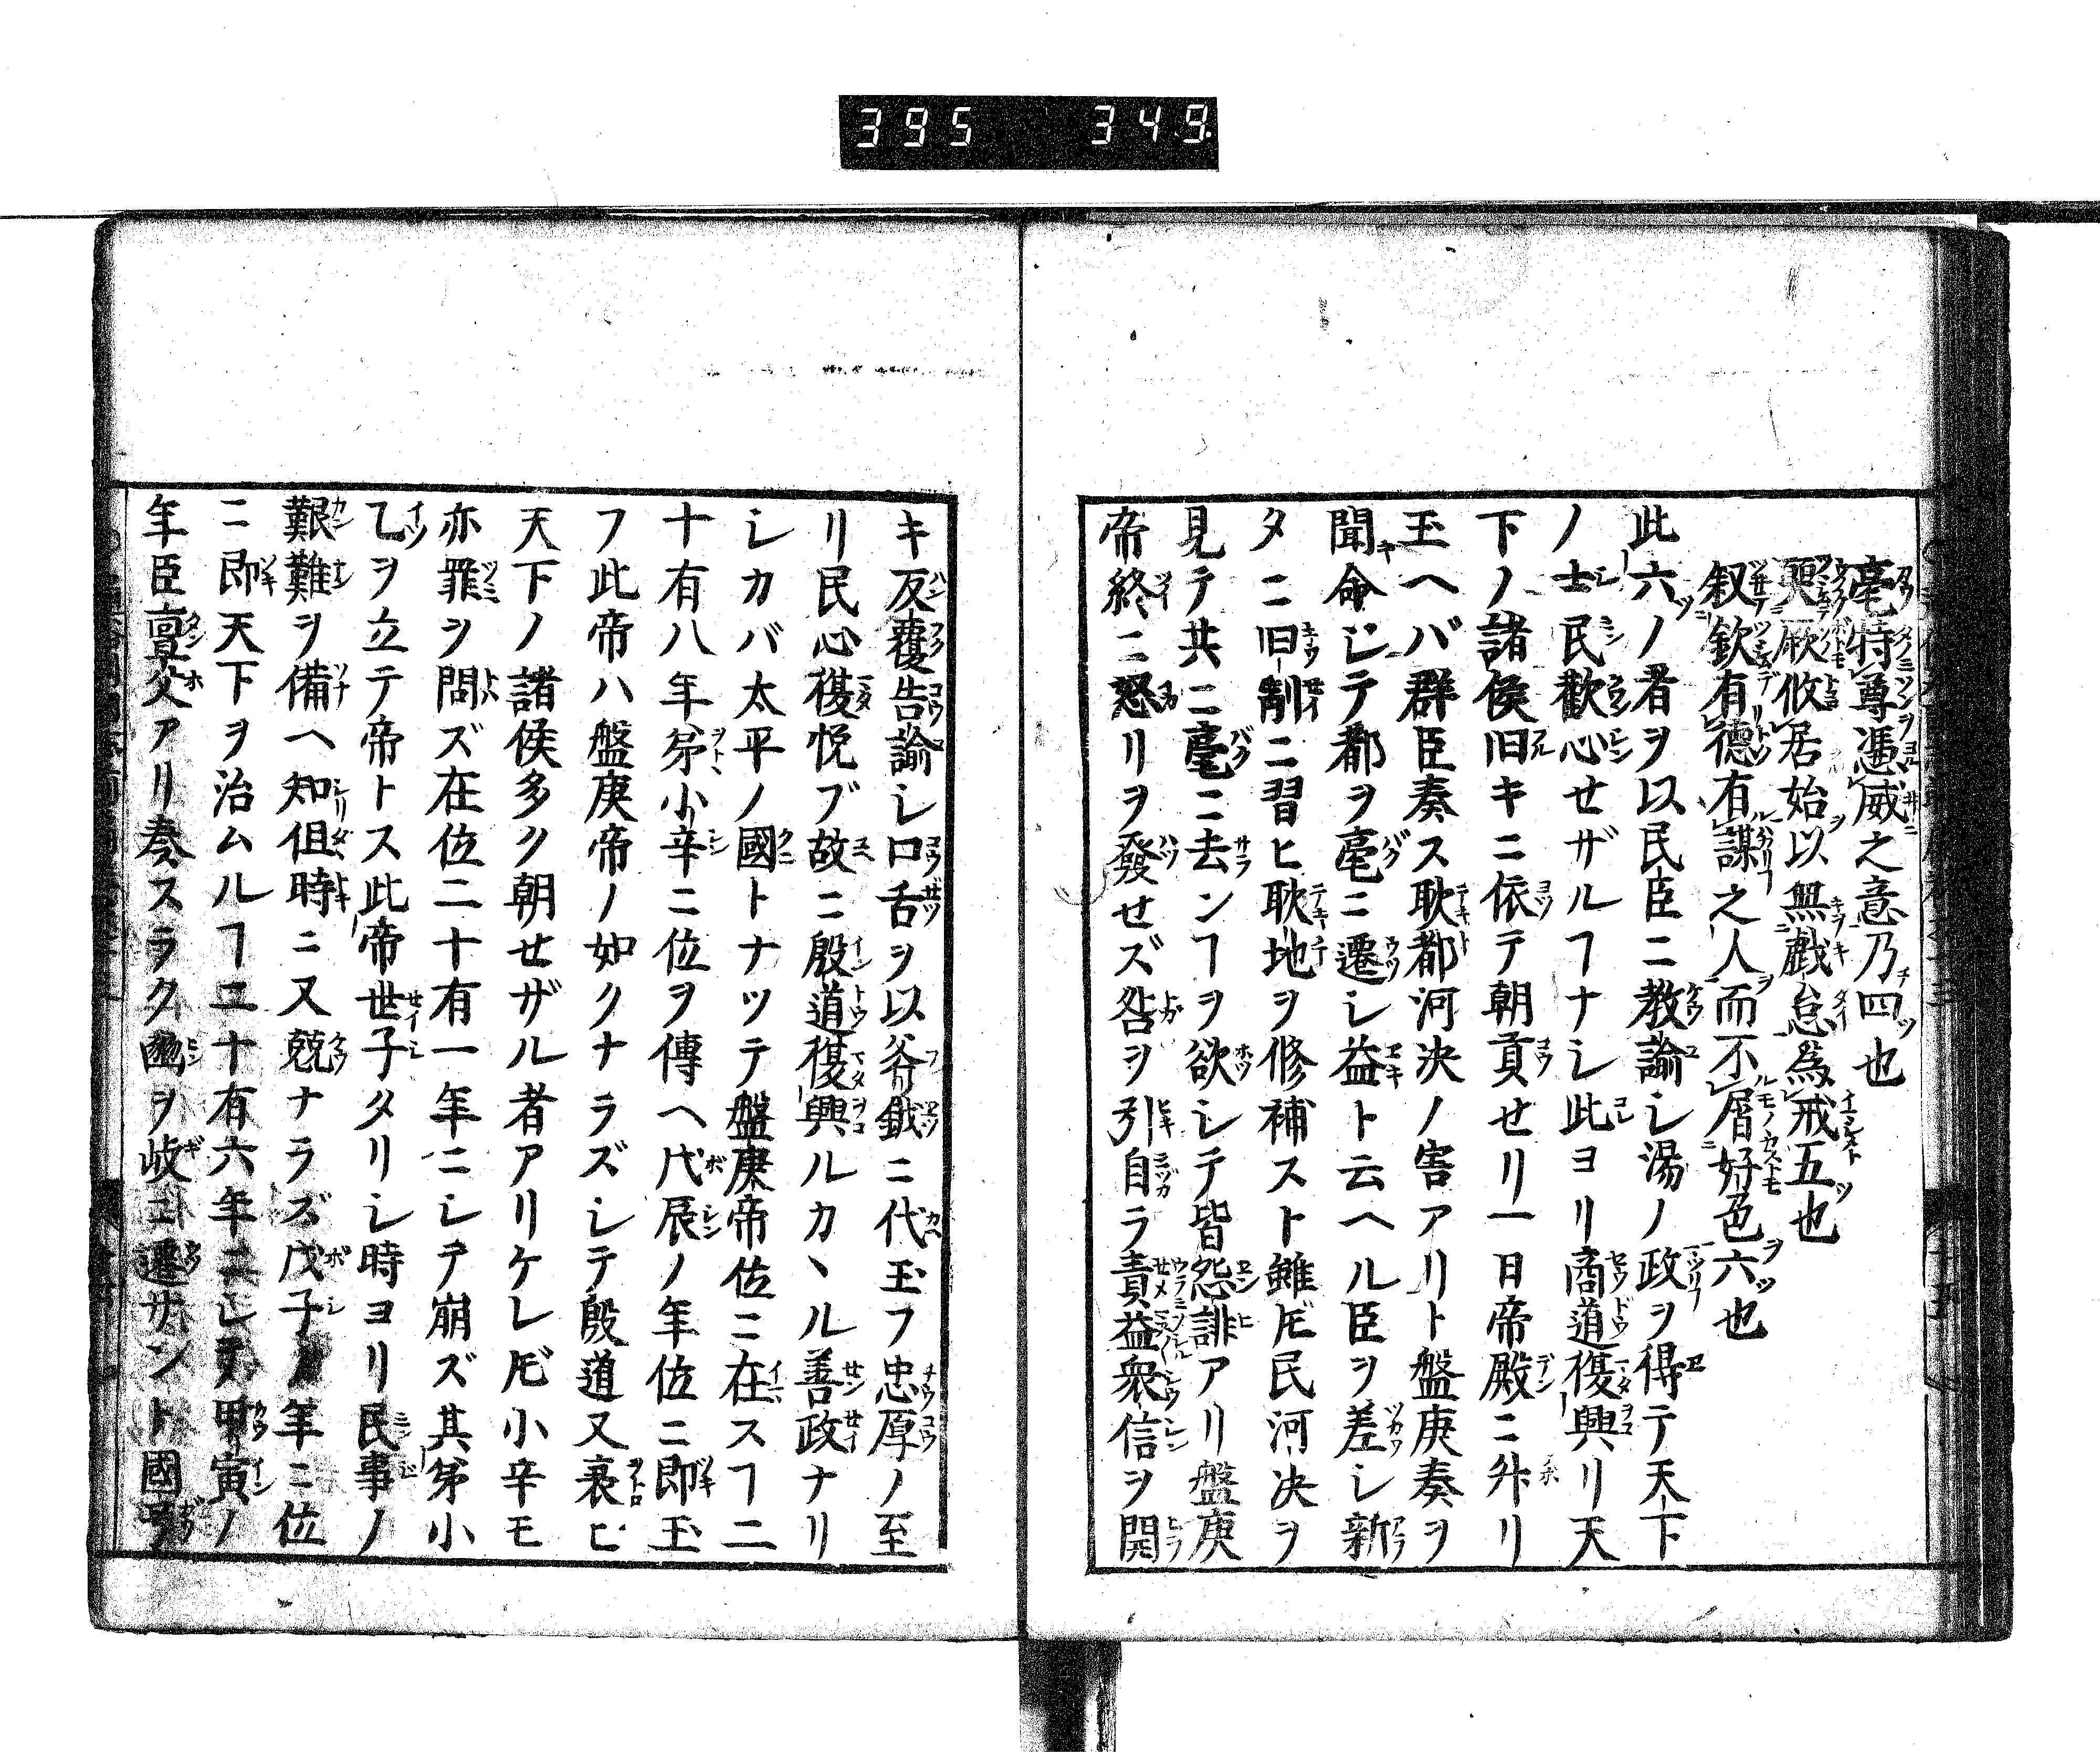 395 349
毫特尊憑威之意乃四也
厥攸居始以無戯怠為戒五也
叙欽有德有謀之人而不屑好色六也
此六ノ者ヲ以民臣ニ教諭シ湯ノ政ヲ得テ天下
ノ士民歡心セザルヿナシ此ヨリ商道復興リ天
下ノ諸侯旧キニ依テ朝貢セリ一日帝殿ニ升リ
玉ヘバ群臣奏ス耿都河决ノ害アリト盤庚奏ヲ
聞命ジテ都ヲ亳ニ遷シ益ト云ヘル臣ヲ差シ新
タニ旧制ニ習ヒ耿地ヲ修補スト雖𪜈民河决ヲ
見テ共ニ亳ニ去ンヿヲ欲シテ皆怨誹アリ盤庚
帝終ニ怒リヲ發セズ咎ヲ引自ラ責益衆信ヲ開
キ反覆告諭シ口舌ヲ以斧鉞ニ代玉フ忠厚ノ至
リ民心復悦ブ故ニ殷道復興ルカヽル善政ナリ
シカバ太平ノ國トナツテ盤庚帝位ニ在スヿ二
十有八年弟小辛ニ位ヲ傳ヘ戊辰ノ年位ニ即玉
フ此帝ハ盤庚帝ノ如クナラズシテ殷道又衰ヒ
天下ノ諸侯多ク朝セザル者アリケレ𪜈小辛モ
亦罪ヲ問ズ在位二十有一年ニシテ崩ズ其弟小
乙ヲ立テ帝トス此帝世子タリシ時ヨリ民事ノ
艱難ヲ備ヘ知徂時ニ又兢ナラズ戊子ノ年ニ位
ニ即天下ヲ治ムルヿ二十有六年ニ甲寅ノ
年臣亶父アリ奏スラク豳ヲ岐ニ遷サント國号ヲ